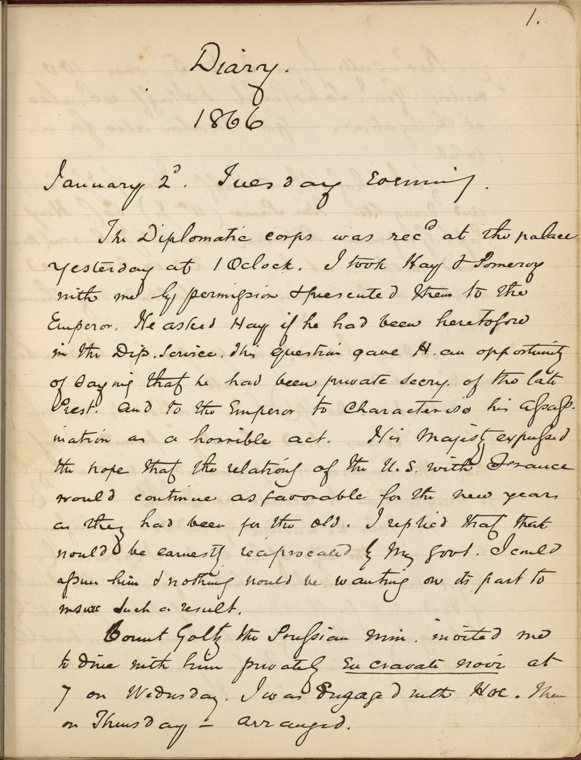 1.
Diary.
1866
January 2d. Tuesday Evening.
The Diplomatic corps was recd at the palace
yesterday at 1 Oclock. I took Hay & Pomeroy
with me by permission & presented them to the
Emperor. He asked Hay if he had been heretofore
in the Dip. Service. This question gave H. an opportunity
of saying that he had been private secry. of the late
Prest. and to the Emperor to characterise his assass-
ination as a horrible act. His Majesty expressed
the hope that the relations of the U.S. with France
would continue as favorable for the new years
as they had been for the old. I replied that that
would be earnestly reciprocated by my Govt. I could
assure him & nothing would be wanting on its part to
insure such a result.
Count Goltz the Prussian Min. invited me
to dine with him privately En cravate noir at
7 on Wednesday. I was Engaged with Hoe. Then
on Thursday — arranged.